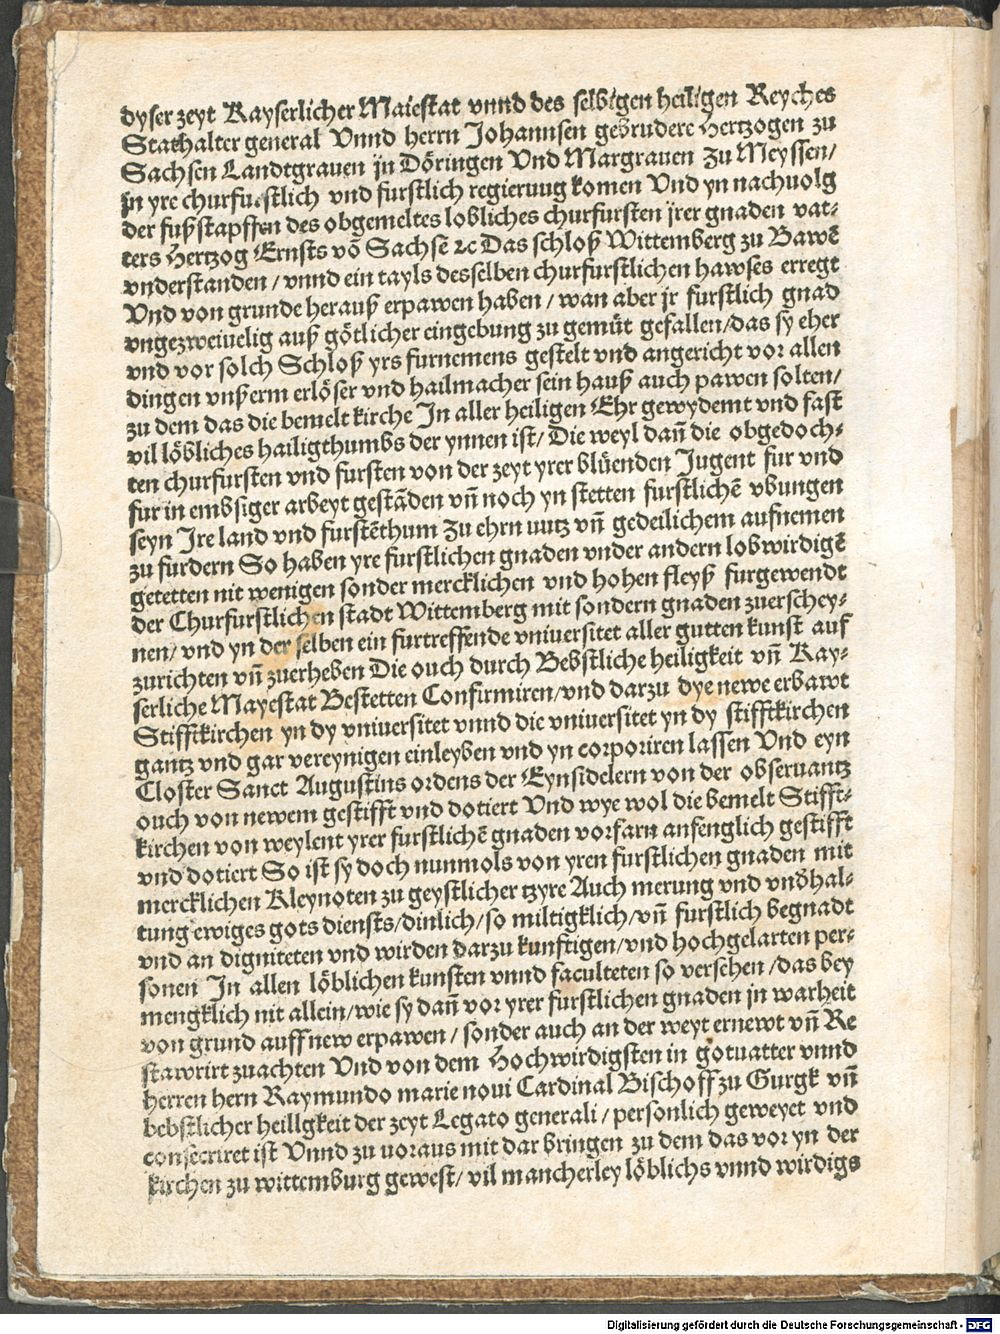 dyser zeyt Kayserlicher Maiestat vnnd des selbigen heiligen Reyches
Stathalter general Vnnd herrn Johannsen gebrudere Hertzogen zu
Sachsen Landtgrauen jn Döringen Vnd Margrauen zu Meyssen/
jn yre churfurstlich vnd furstlich regieruug komen Vnd yn nachuolg
der fußstapffen des obgemeltes lobliches churfursten jrer gnaden vat⸗
ters Hertzog Ernsts vō Sachsē ꝛc Das schloß Wittemberg zu Bawē
vnderstanden / vnnd ein tayls desselben churfurstlichen hawses erregt
Vnd von grunde herauß erpawen haben / wan aber jr furstlich gnad
vngezweiuelig auß götlicher eingebung zu gemüt gefallen/das sy eher
vnd vor solch Schloß yrs furnemens gestelt vnd angericht vor allen
dingen vnßerm erlöser vnd hailmacher sein hauß auch pawen solten/
zu dem das die bemelt kirche In aller heiligen Ehr gewydemt vnd fast
vil löbliches hailigthumbs der ynnen ist/ Die weyl dañ die obgedoch⸗
ten churfursten vnd fursten von der zeyt yrer blüenden Jugent fur vnd
fur in embsiger arbeyt gestāden vñ noch yn stetten furstlichē vbungen
seyn Jre land vnd furstēthum Zu ehrn uutz vñ gedeilichem aufnemen
zu furdern So haben yre furstlichen gnaden vnder andern lobwirdigē
getetten nit wenigen sonder mercklichen vnd hohen fleyß furgewendt
der Churfurstlichen stadt Wittemberg mit sondern gnaden zuerschey⸗
nen/ vnd yn der selben ein furtreffende vniuersitet aller gutten kunst auf
zurichten vñ zuerheben Die ouch durch Bebstliche heiligkeit vñ Kay⸗
serliche Mayestat Bestetten Confirmiren/vnd darzu dye newe erbawt
Stifftkirchen yn dy vniuersitet vnnd die vniuersitet yn dy stifftkirchen
gantz vnd gar vereynigen einleyben vnd yn corporiren lassen Vnd eyn
Closter Sanct Augustins ordens der Eynsidelern von der obseruantz
ouch von newem gestifft vnd dotiert Vnd wye wol die bemelt Stifft⸗
kirchen von weylent yrer furstlichē gnaden vorfarn anfenglich gestifft
vnd dotiert So ist sy doch nunmols von yren furstlichen gnaden mit
mercklichen Kleynoten zu geystlicher tzyre Auch merung vnd vnd̄hal⸗
tung ewiges gots diensts/dinlich/so miltigklich/vñ furstlich begnadt
vnd an digniteten vnd wirden darzu kunftigen/vnd hochgelarten per⸗
sonen In allen löblichen kunsten vnnd faculteten so versehen /das bey
mengklich nit allein/wie sy dañ vor yrer furstlichen gnaden jn warheit
von grund auff new erpawen / sonder auch an der weyt ernewt vñ Re
stawrirt zuachten Vnd von dem Hochwirdigsten in gotuatter vnnd
herren hern Raymundo marie noui Cardinal Bischoff zu Gurgk vñ
bebstlicher heillgkeit der zeyt Legato generali / personlich geweyet vnd
consecriret ist Vnnd zu uoraus mit dar bringen zu dem das vor yn der
kirchen zu wittemburg gewest/ vil mancherley löblichs vnnd wirdigs
Digitalisierung gefördert durch die Deutsche Forschungsgemeinschaft - DFG